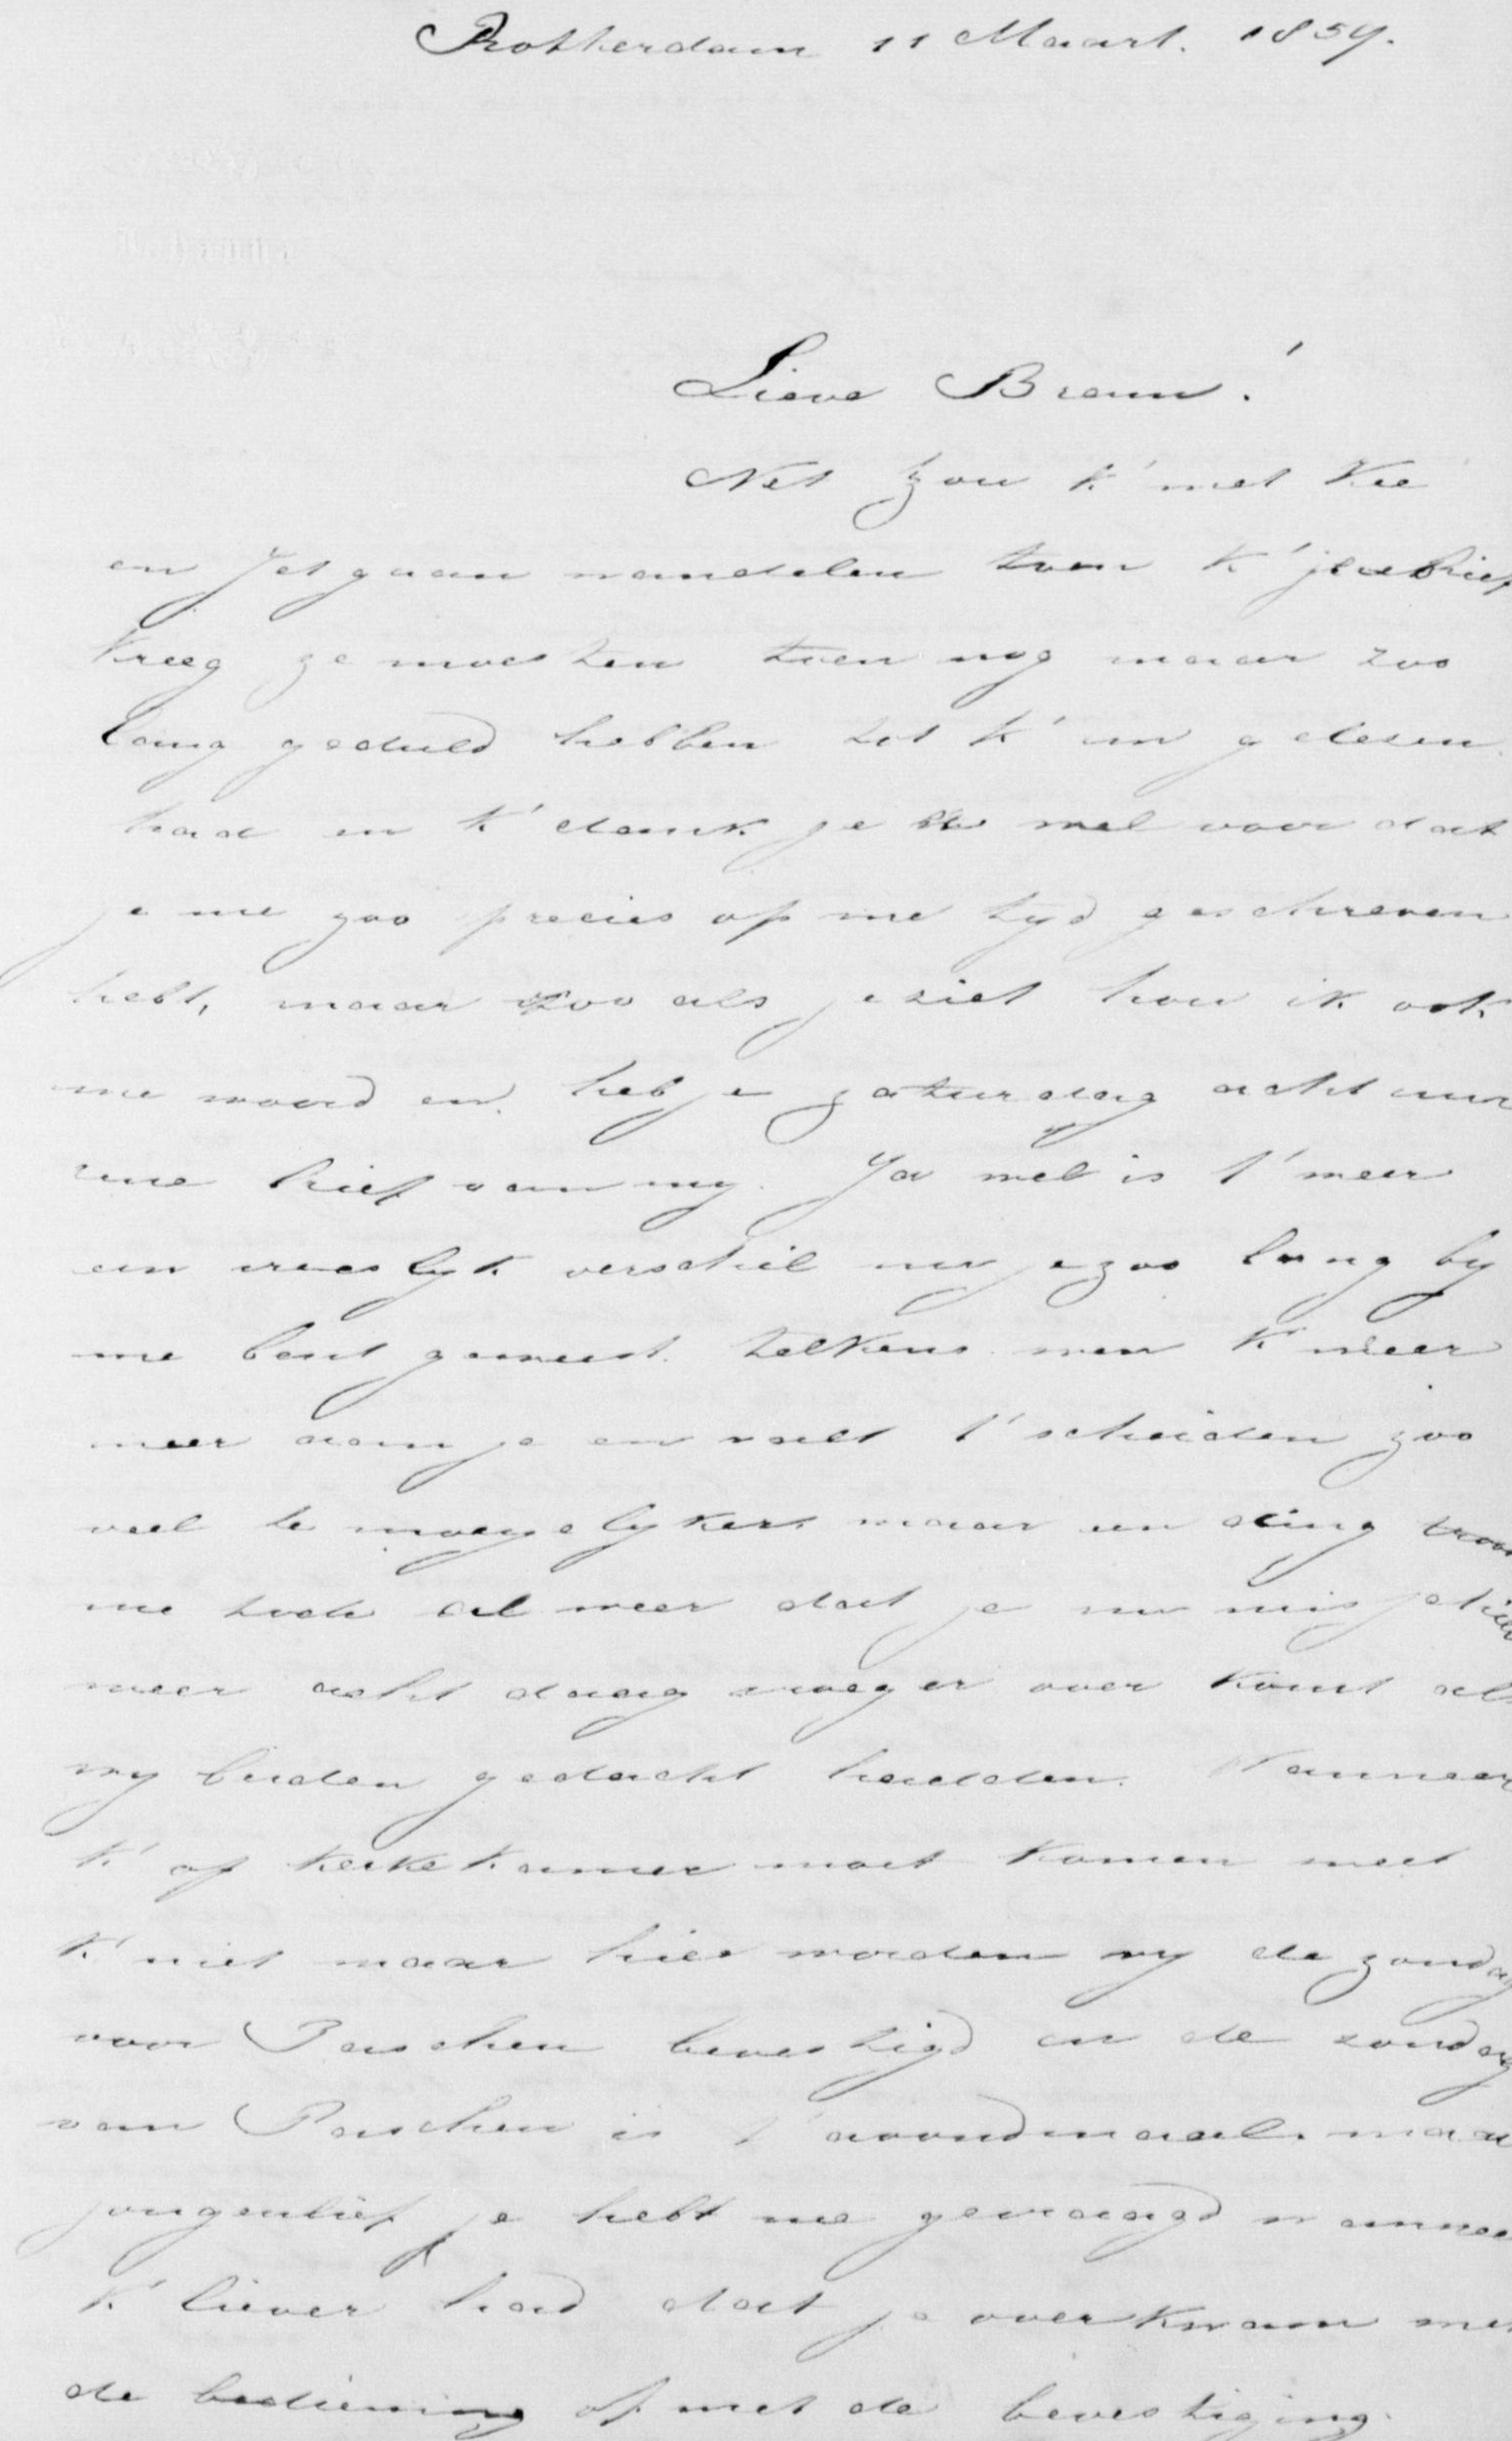 Rotterdam 11 Maart. 1859.
Lieve Bram!
Net zou k' met Kee
en Jet gaan wandelen toen k' je brief
kreeg ze moesten toen nog maar zoo
lang geduld hebben tot k' em gelesen
had en k' dank je wel voor dat
je me zoo precies op me tyd geschreven
hebt, maar zoo als je ziet hou ik ook
me woord en heb je zaturdag acht uur
ene brief van my. Ja wel is t' weer
een vreeslyk verschil nu je zoo lang by
me bent geweest. telkens wen k' weer
meer aan je en valt t' scheiden zoo
veel te moeyelyker. maar een ding
me toch al weer dat je nu mis
weer acht daag vroeger over komt als
wy beiden gedacht hadden. Wanneer
k' op kerkekamer moet komen weet
k' niet maar hier worden wy de zondag
voor Paschen bevestigd en de zondag
van Paschen is t' avondmaal. maar
jongenlief je hebt me gevraagd wanneer
k' liever had dat je overkwam met
de bediening of met de bevestiging.